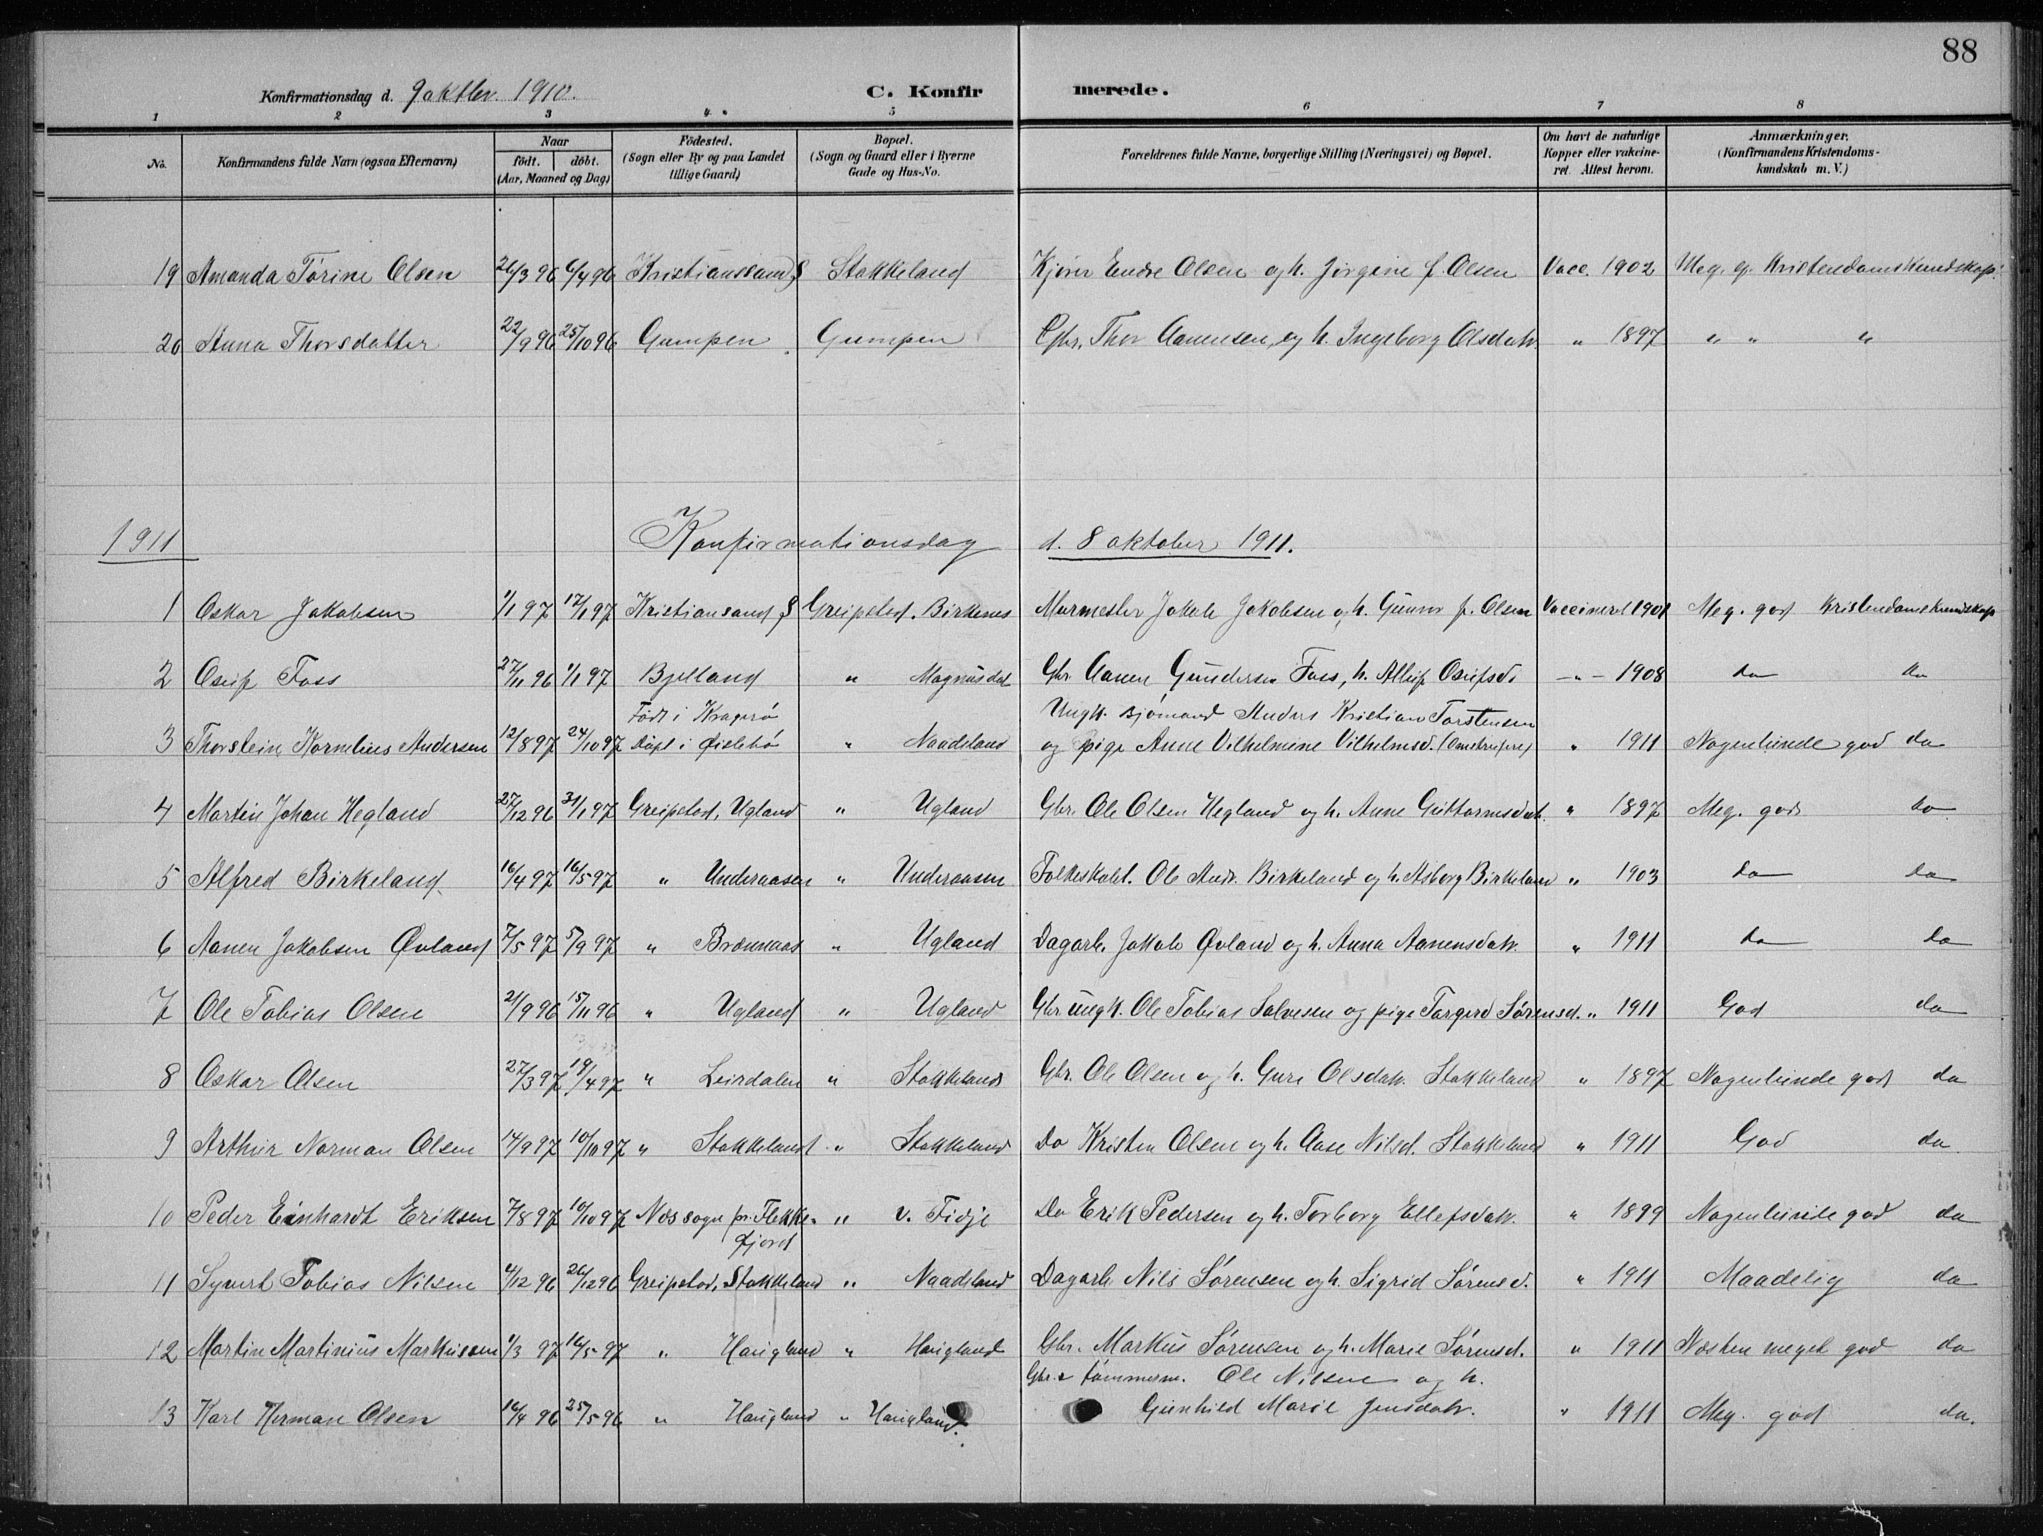 88
Konfirmationsdag d. 9 oktbr. 1910. C. Konfirmerede.
1 2 3 4 5 6 7 8
No. Konfirmandens fulde Navn (ogsaa Efternavn) Naar født. døbt. (Aar, Maaned og Dag) Fødested. (Sogn eller By og paa Landet tillige Gaard) Bopæl. (Sogn og Gaard eller i Byerne Gade og Hus-No. Forældrenes fulde Navne, borgerlige Stilling (Næringsvei) og Bopæl. Om havt de naturlige Kopper eller vakcineret. Attest herom. Anmærkninger. (Konfirmandens Kristendomskundskab m. V.)
19 Amanda Tørine Olsen 26/3 96 6/4 96 Kristianssand S Stokkeland Kjører Endre Olsen og h. Jørgine f. Olsen Vacc. 1902 Meg. g. Kristendomskundskap.
20 Anna Thorsdatter 22/9 96 25/10 96 Gumpen Gumpen Gbr. Thor Aanensen og h. Ingeborg Olsdatr. " 1897 " " "
1911 Konfirmationsdag d. 8 oktober 1911.
1 Oskar Jakobsen 1/1 97 17/1 97 Kristiansand S Greipstad. Birkenes Murmester Jakob Jakobsen og h. Gunvor f. Olsen Vaccineret 1901 Meg. god Kristendomskundskap
2 Osuf Foss 27/11 96 1/1 97 Bjelland " Magnusdal Gbr. Aanen Gundersen Foss, h. Osufsd. — " — 1908 do do
3 Thorstein Kornelius Andersen 12/8 97 24/10 97 Født i Kragerø Døpt i Øislebø " Naadeland Ungk. Sjømand Anders Kristian Torstensen
og pige Anne Vilhelmine Vilhelmsd. " 1911 Nogenlunde god do
4 Martin Johan Hegland 27/12 96 31/1 97 Greipstad, Ugland " Ugland Gbr. Ole Olsen Hegland og h. Anne Guttormsdatr. " 1897 Meg. god do
5 Alfred Birkeland 16/4 97 16/5 97 " Underaasen " Underaasen Folkeskolel. Ole Andr. Birkeland og h. Asborg Birkeland " 1903 do do
6 Aanen Jakobsen Øvland 7/5 97 5/9 97 " Brennaas " Ugland Dagarb. Jakob Øvland og h. Anna Aanensdatr. " 1911 do do
7 Ole Tobias Olsen 21/9 96 15/11 96 " Ugland " Ugland Gbr. ungk. Ole Tobias Salvesen og pige Torgerd Sørensd. " 1911 God do
8 Oskar Olsen 27/3 97 19/4 97 " Leirdalen " Stokkeland Gbr. Ole Olsen og h. Guri Olsdatr. Stokkeland " 1897 Nogenlunde god do
9 Arthur Norman Olsen 14/9 97 10/10 97 " Stokkeland " Stokkeland Do Kristen Olsen og h. Aase Nilsd. Stokkeland " 1911 God do
10 Peder Einhardt Eriksen 7/8 97 10/10 97 Nes sogn pr. Flekkefjord " v. Fidje Do Erik Pedersen og h. Torborg Ellefsdatr. " 1899 Nogenlunde god do
11 Syvert Tobias Nilsen 4/12 96 26/12 96 Greipstad, Stokkeland " Naadeland Dagarb. Nils Sørensen og h. Sigrid Sørensd. " 1911 Maadelig do
12 Martin Martinius Markussen 1/3 97 16/5 97 " Haugland " Haugland Gbr. Markus Sørensen og h. Marie Sørensd. " 1911 Næsten meget god do
13 Karl Herman Olsen 16/4 96 25/5 96 " Haugland " Haugland. Gbr. & tømmerm. Ole Nilsen og h.
Gunhild Marie Jensdatr. " 1911 Meg. god do.